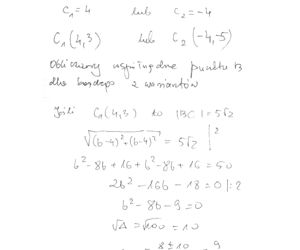 C₁=4 lub C₂=-4
C₁(4,3) lub C₂(-4,-5)
Obliczamy współrzędne punktu B
dla każdego z wariantów
Jeśli C₁(4,3) to |BC|=5√2
√((b-4)²+(b-4)²) = 5√2 |²
b²-8b+16+b²-8b+16=50
2b²-16b-18=0 |:2
b²-8b-9=0
√Δ=√100=10
8±10 9